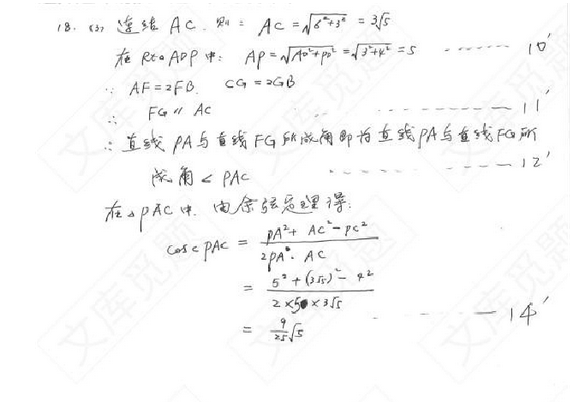 18. (3) 连结 AC. 则: AC = √(6²+3²) = 3√5
在 Rt△ADP 中: AP = √(AD²+PD²) = √(3²+4²) = 5 ------ 10′
∵ AF = 2FB. CG = 2GB
∴ FG // AC ------ 11′
∴ 直线 PA 与直线 FG 所成角即为直线 PA 与直线 FG 所
成角 ∠PAC ------ 12′
在△PAC 中. 由余弦定理得:
cos∠PAC = (PA² + AC² - PC²) / (2PA · AC)
= (5² + (3√5)² - 4²) / (2×5×3√5)
= 9/25 √5 ------ 14′
文库觅题